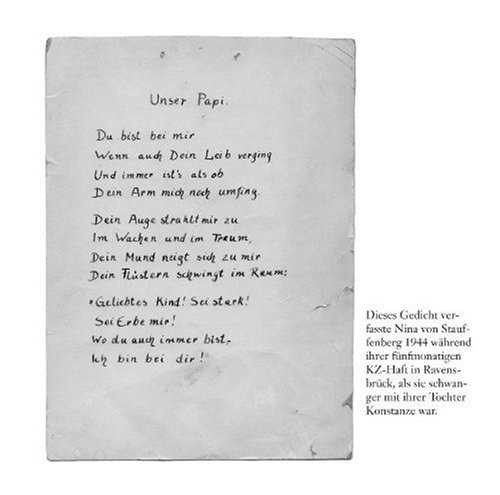 Unser Papi.
Du bist bei mir
Wenn auch Dein Leib verging
Und immer ist's als ob
Dein Arm mich noch umfing.
Dein Auge strahlt mir zu
Im Wachen und im Traum,
Dein Mund neigt sich zu mir
Dein Flüstern schwingt im Raum:
"Geliebtes Kind! Sei stark!
Sei Erbe mir!
Wo du auch immer bist,
Ich bin bei dir!
Dieses Gedicht ver-
fasste Nina von Stauf-
fenberg 1944 während
ihrer fünfmonatigen
KZ-Haft in Ravens-
brück, als sie schwan-
ger mit ihrer Tochter
Konstanze war.